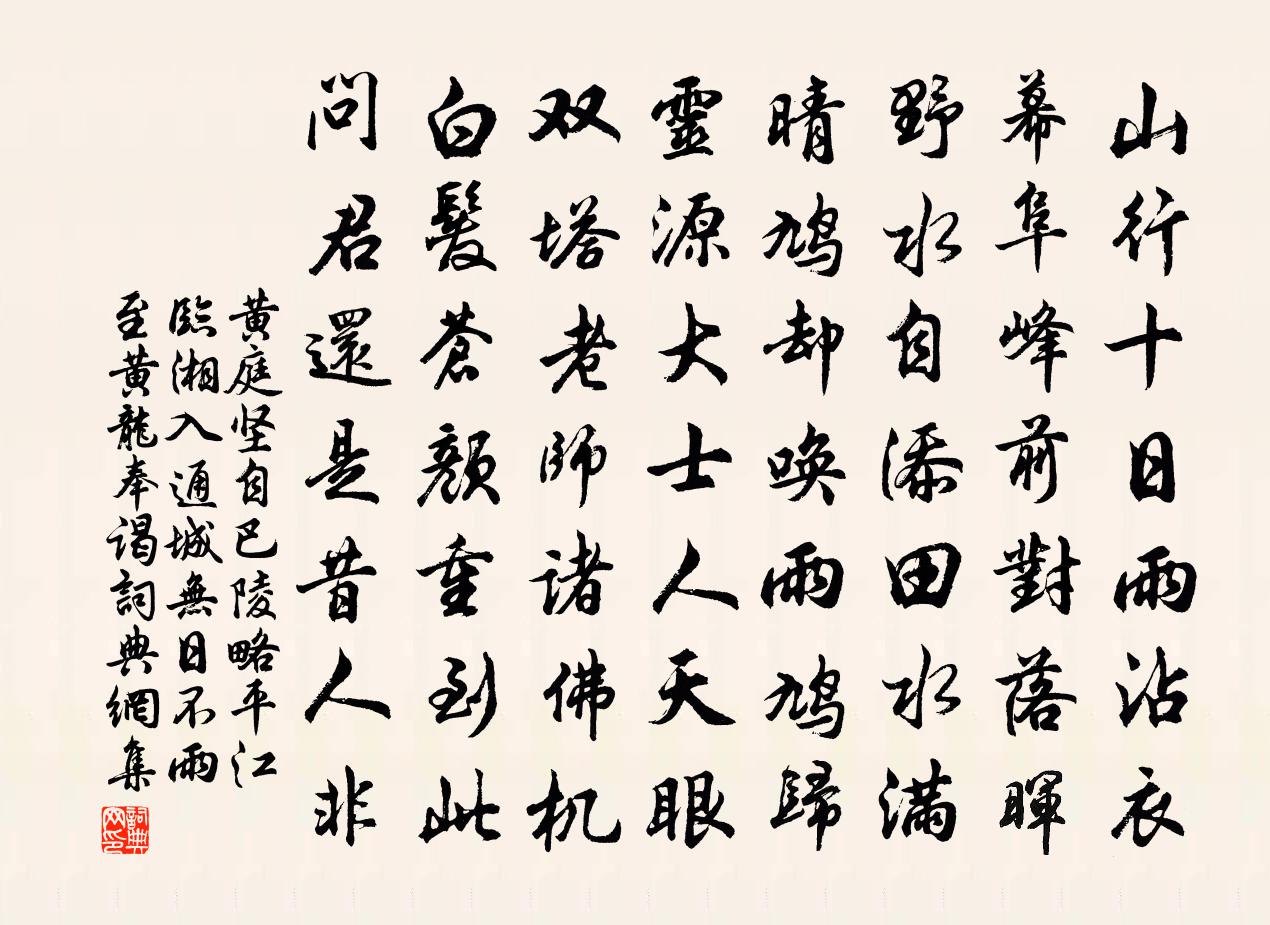 山行十日雨沾衣
幕阜峰前對落暉
野水自添田水滿
晴鸠却唤雨鸠歸
靈源大士人天眼
双塔老師諸佛机
白髮蒼顏重到此
問君還是昔人非
黄庭坚自巴陵略平江
臨湘入通城無日不雨
至黄龍奉谒詞典網集
詞典
网印